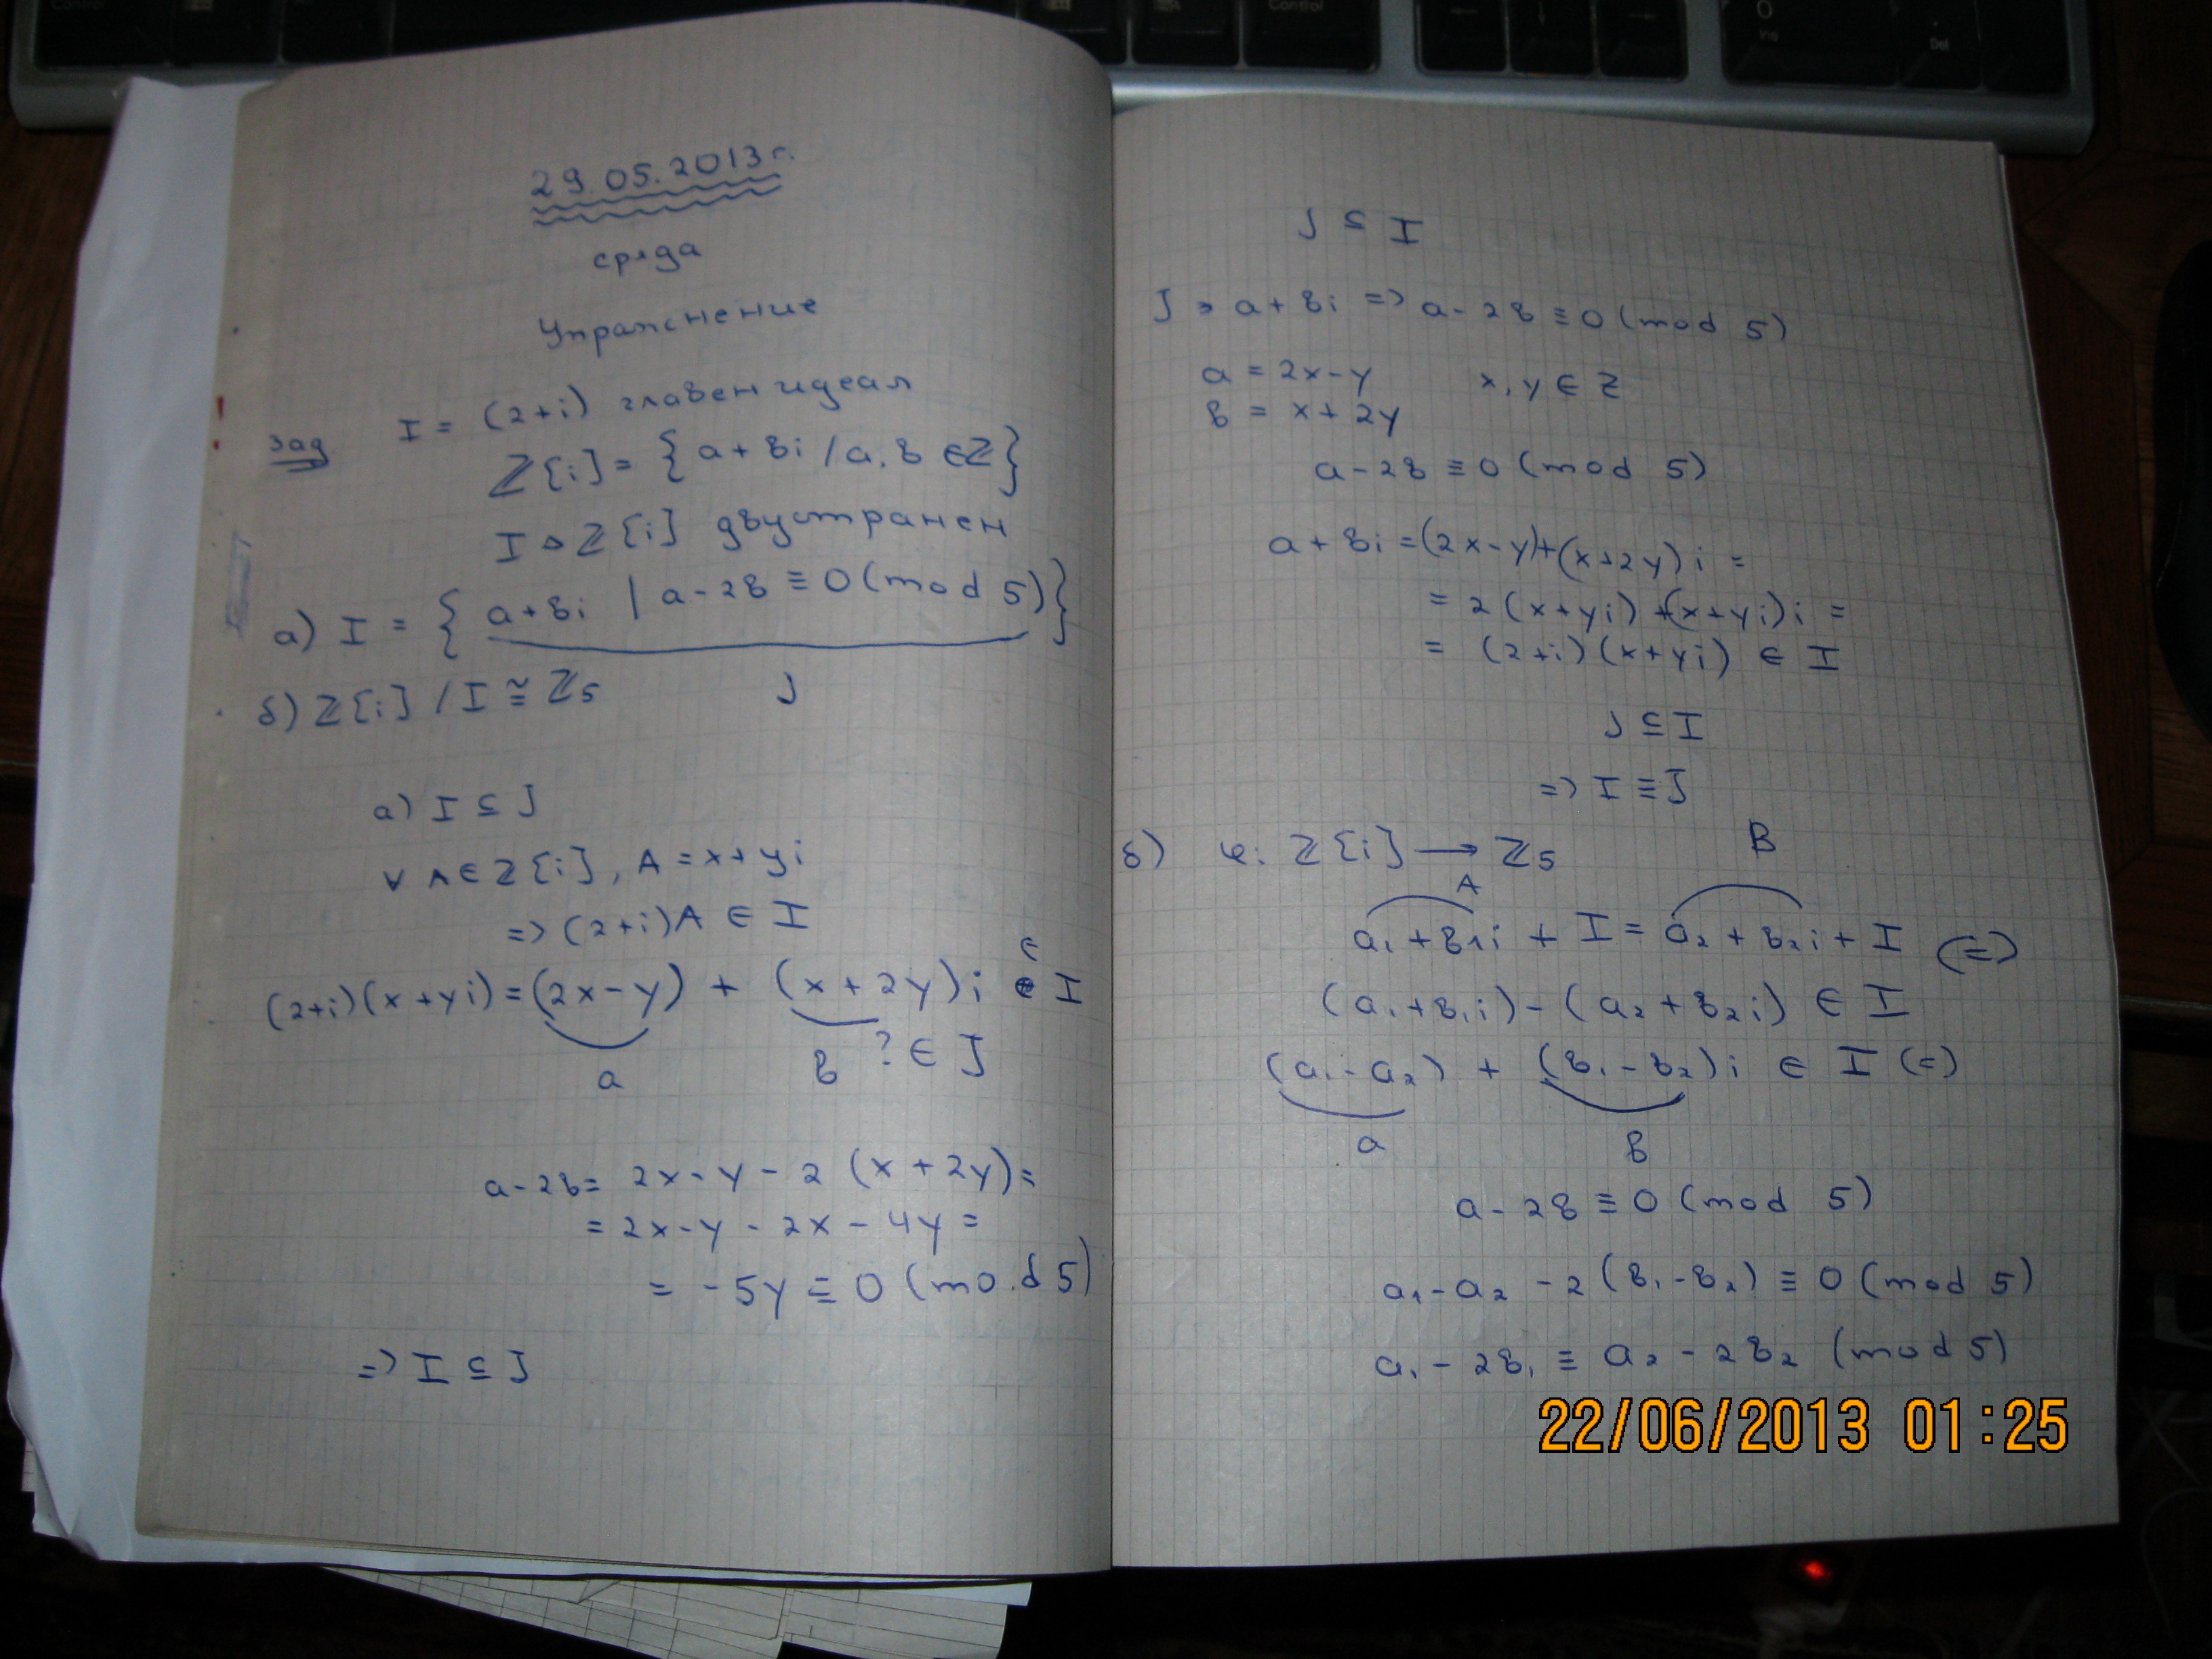 29.05.2013г.
сряда
Упражнение
зад I = (2+i) главен идеал
ℤ[i] = {a+вi / a,в ∈ℤ}
I ⊲ ℤ[i] двустранен
а) I = {a+вi | a-2в ≡ 0 (mod 5)}
J
б) ℤ[i] / I ≅ ℤ5
а) I ⊆ J
∀ A∈ℤ[i], A = x+yi
=> (2+i)A ∈ I
∈
(2+i)(x+yi) = (2x-y) + (x+2y)i ∈ I
a в ? ∈ J
a-2в = 2x-y-2(x+2y) =
= 2x-y-2x-4y =
= -5y ≡ 0 (mod 5)
=> I ⊆ J
J ⊆ I
J ∋ a+вi => a-2в ≡ 0 (mod 5)
a = 2x-y x,y ∈ ℤ
в = x+2y
a-2в ≡ 0 (mod 5)
a+вi = (2x-y)+(x+2y)i =
= 2(x+yi)+(x+yi)i =
= (2+i)(x+yi) ∈ I
J ⊆ I
=> I ≡ J
б) φ: ℤ[i] → ℤ5
A B
a₁+в₁i + I = a₂+в₂i + I (=)
(a₁+в₁i) - (a₂+в₂i) ∈ I
(a₁-a₂) + (в₁-в₂)i ∈ I (=)
a в
a-2в ≡ 0 (mod 5)
a₁-a₂-2(в₁-в₂) ≡ 0 (mod 5)
a₁-2в₁ ≡ a₂-2в₂ (mod 5)
22/06/2013 01:25